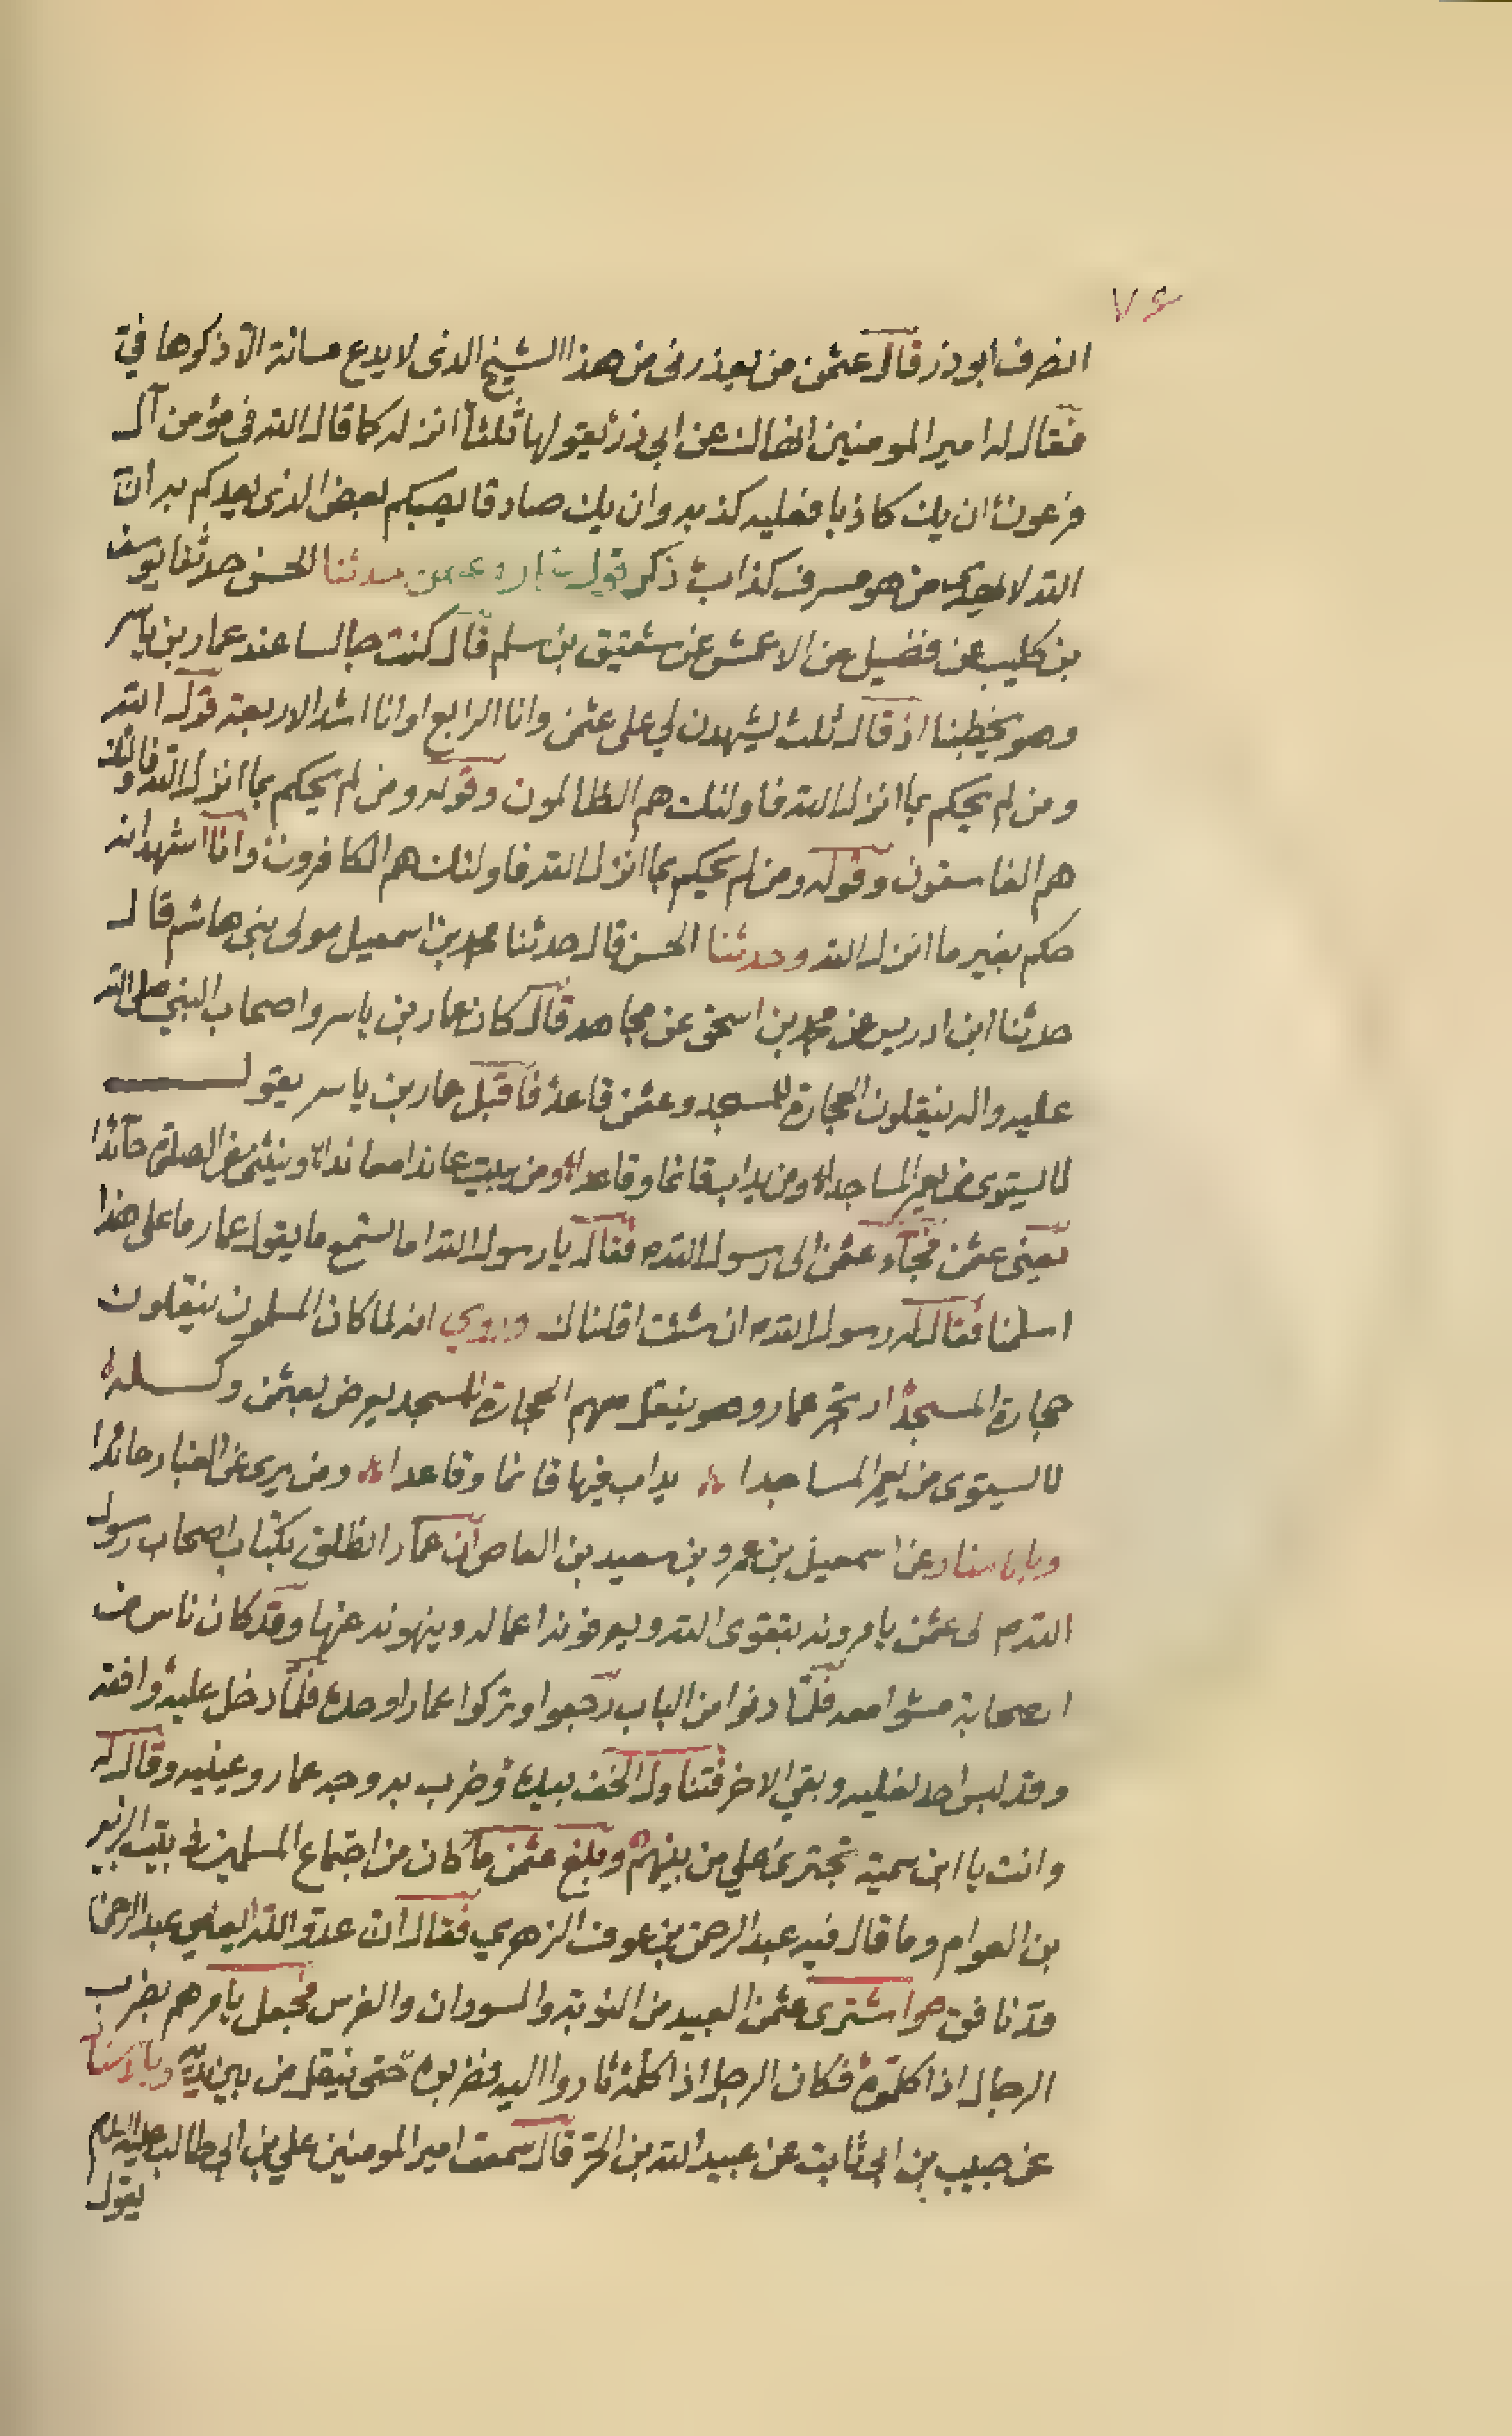 ٧٤
انصرف ابوذر قال عثمن من يعذرنى من هذا الشيخ الذى لا يدع مسائة الا ذكرها فىّ
فقال له امير المومنين انهاك عن ابى ذر يقولها ثلثا انزله كما قال الله فى مؤمن آل
فرعون ان يك كاذبا فعليه كذبه وان يك صادقا يصبكم بعض الذى يعدكم به ان
الله لا يهدى من هو مسرف كذاب ذكر قول عمار وعثمن حدثنا الحسن حدثنا يوسف
بن كليب عن فضيل عن الاعمش عن شقيق بن سلم قال كنت جالسا عند عمار بن ياسر
وهو يخطبنا اذ قال ثلث ليشهدن لي على عثمن وانا الرابع اوانا اشد الاربعة قوله الله
ومن لم يحكم بما انزل الله فاولئك هم الظالمون وقوله ومن لم يحكم بما انزل الله فاولئك
هم الفاسقون وقوله ومن لم يحكم بما انزل الله فاولئك هم الكافرون وانا اشهد انه
حكم بغير ما انزل الله وحدثنا الحسن قال حدثنا محمد بن اسمعيل مولى بنى هاشم قال
حدثنا ابن ادريس عن محمد بن اسحق عن مجاهد قال كان عمار بن ياسر واصحاب النبي صلى الله
عليه واله ينقلون الحجارة للمسجد وعثمن قاعد فاقبل عمار بن ياسر يقول
لا يستوى من يعمر المساجدا ومن يداب قائما وقاعدا ومن يبيت عاندا معاندا وينثنى عن الصلوة حائدا
يعنى عثمن فجآء عثمن الى رسول الله م فقال يا رسول الله اما تستمع ما يقول عمار ما على هذا
اسلمنا فقال له رسول الله م ان شئت اقلناك وروي انه لما كان المسلمون ينقلون
حجارة المسجد ارتجز عمار وهو ينقل معهم الحجارة للمسجد يعرض بعثمن وكسله
لا يستوى من يعمر المساجدا يداب فيها قائما وقاعدا ومن يرى عن الغبار حائدا
وباسناده عن اسمعيل بن عمرو بن سعيد بن العاص ان عمار انطلق بكتاب اصحاب رسول
الله م لى عثمن يامرونه بتقوى الله ويعرفونه اعماله وينهونه عنها وقد كان ناس من
اصحابه مشوا معه فلما دنوا من الباب رجعوا وتركوا عمارا وحده فلما دخل عليه وافقه
وقد لبس احد نعليه وبقي الاخر فتناول الخف بيده وضرب به وجه عمار وعينيه وقال له
وانت يا ابن سمية تجترئ علي من بينهم وبلغ عثمن ما كان من اجتماع المسلمين فى بيت الزبير
بن العوام وما قال فيه عبد الرحمن بن عوف الزهري فقال ان عدو الله يعني عبد الرحمن
قد نافق هوا شترى عثمن العبيد من النوبة والسودان والفرس فجعل يامرهم بضرب
الرجال اذا كلموه فكان الرجل اذا كلمه ثاروا اليه فضربوه حتى ينقل من بين يديه وباسناد
عن حبيب بن ابى ثابت عن عبيد الله بن الحر قال سمعت امير المومنين علي بن ابى طالب عليه السلام
يقول